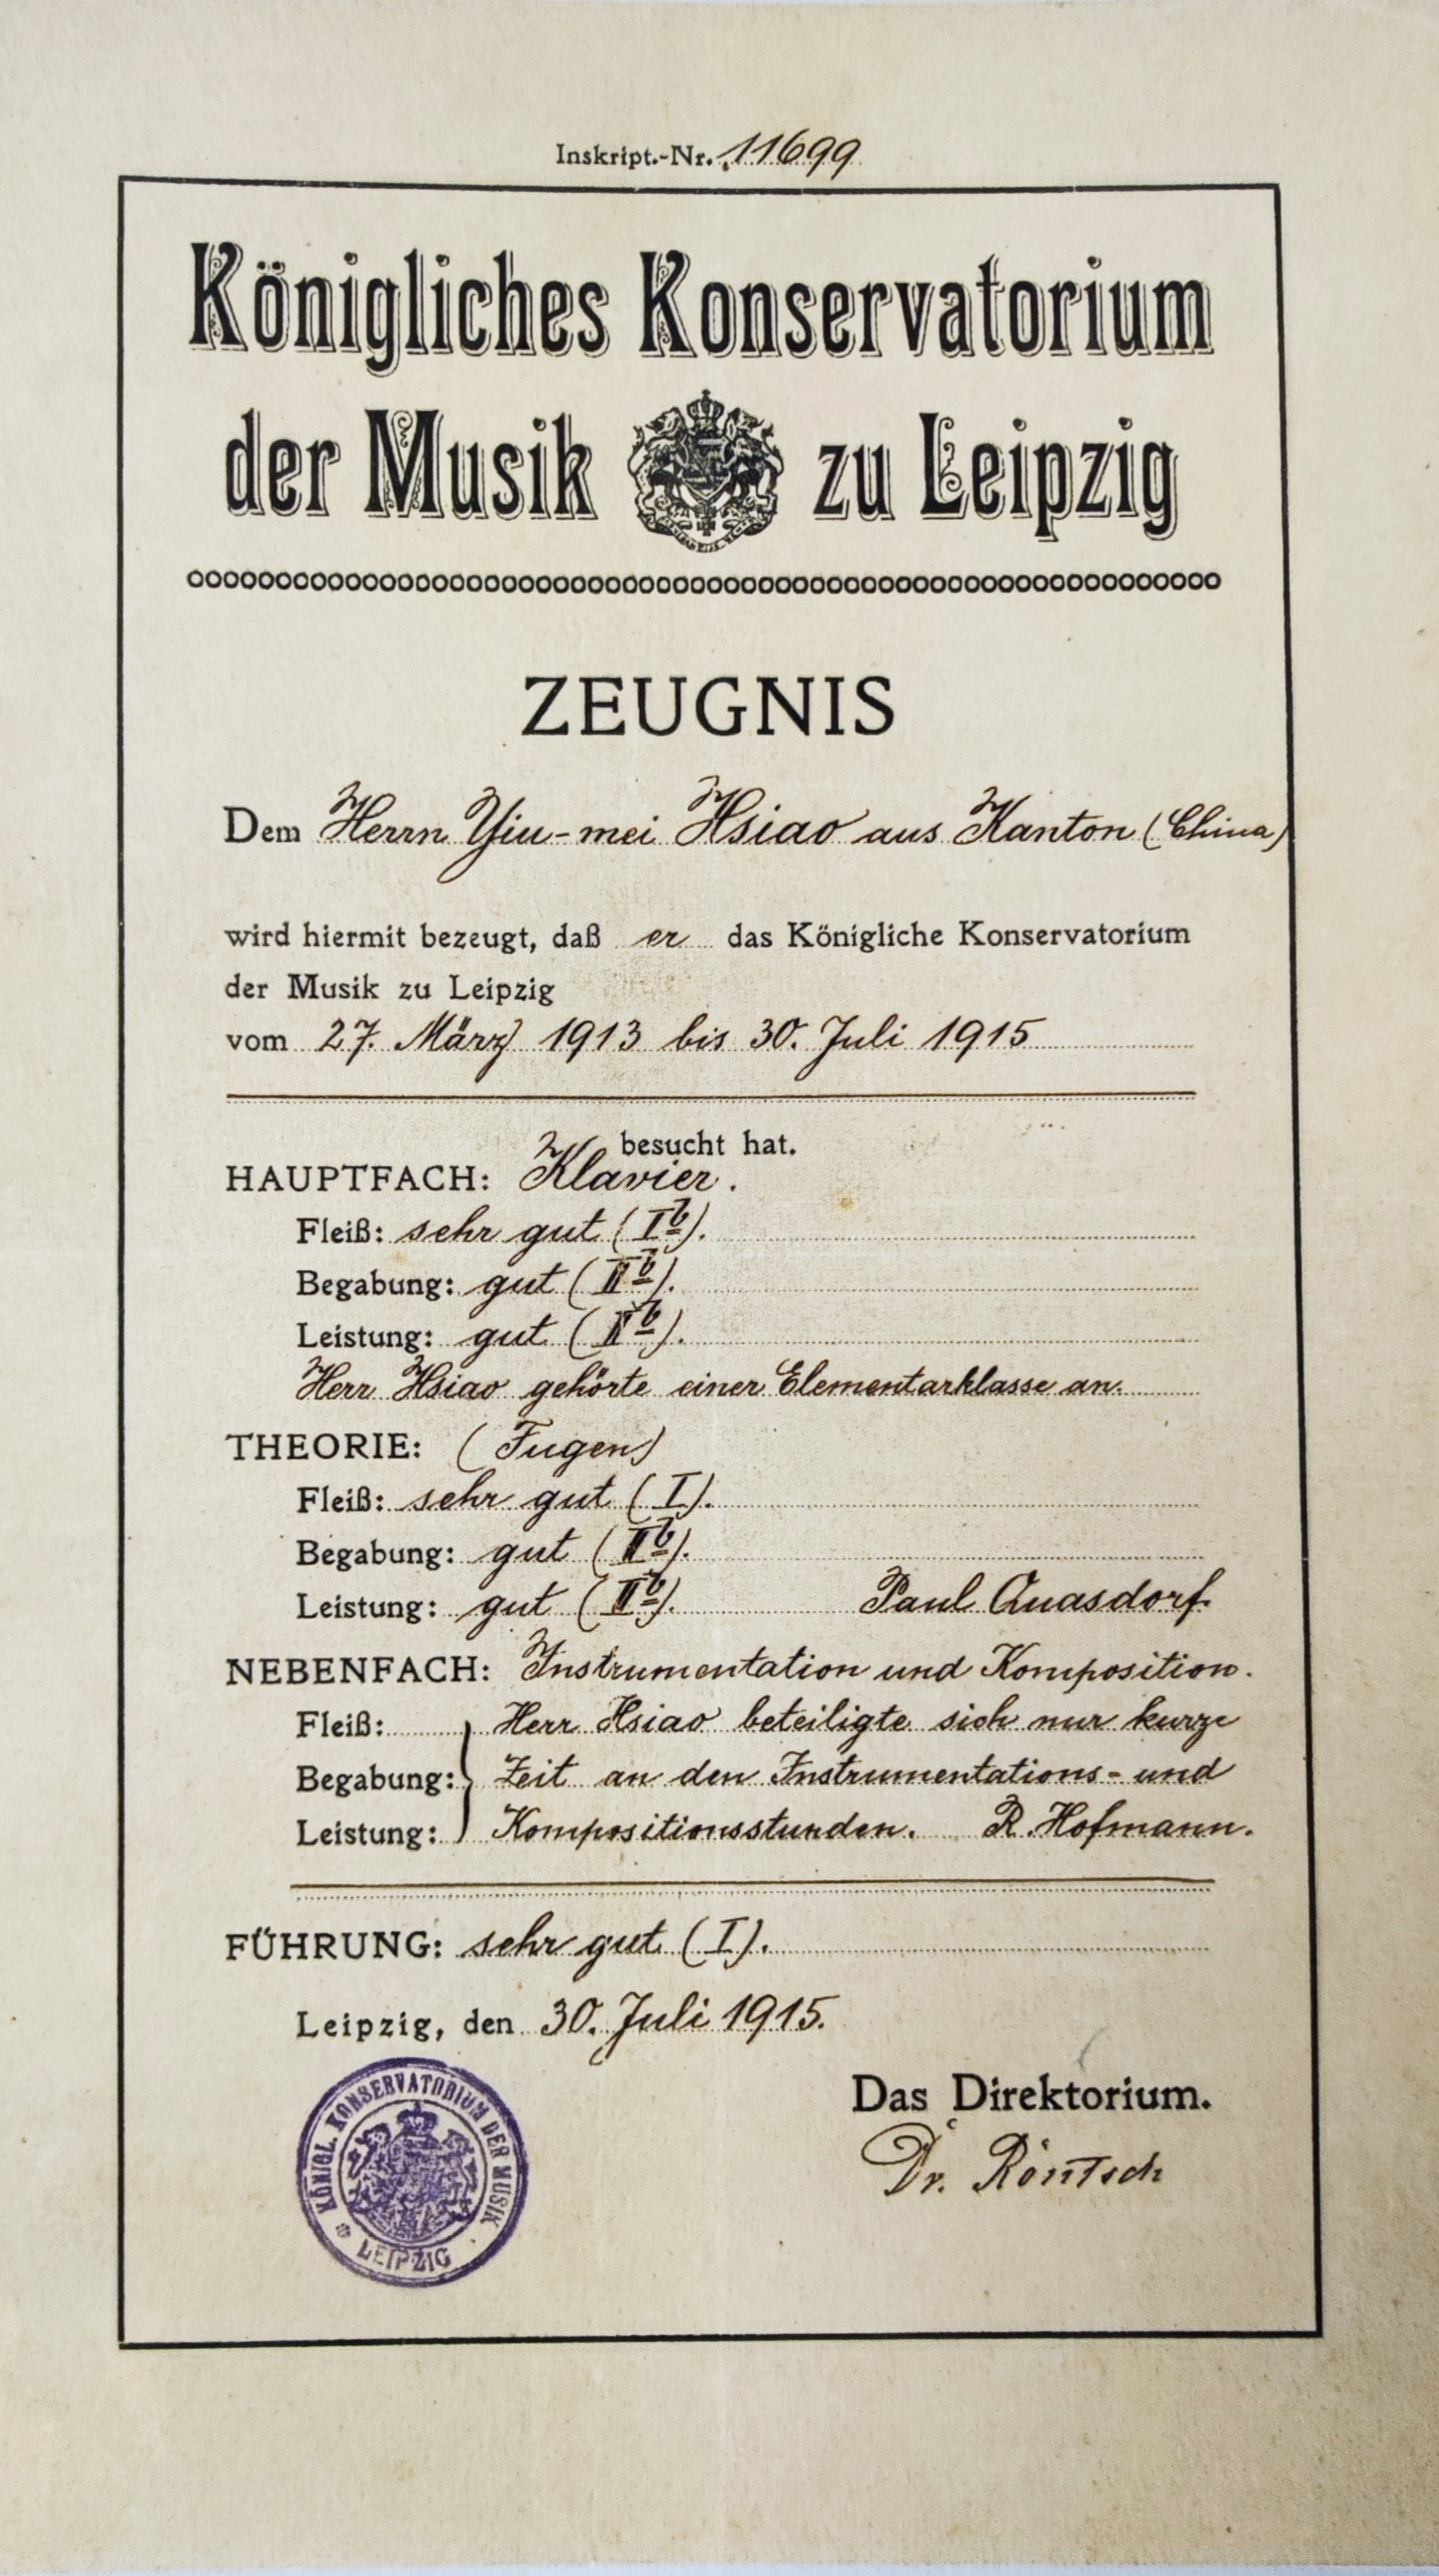 Inskript.-Nr. 11699
Königliches Konservatorium
der Musik zu Leipzig
ZEUGNIS
Dem Herrn Yiu-mei Hsiao aus Kanton (China)
wird hiermit bezeugt, daß er das Königliche Konservatorium
der Musik zu Leipzig
vom 27. März 1913 bis 30. Juli 1915
besucht hat.
HAUPTFACH: Klavier.
Fleiß: sehr gut (Ib).
Begabung: gut (IIb).
Leistung: gut (IIb).
Herr Hsiao gehörte einer Elementarklasse an.
THEORIE: (Fugen)
Fleiß: sehr gut (I).
Begabung: gut (IIb).
Leistung: gut (IIb). Paul Quasdorf.
NEBENFACH: Instrumentation und Komposition.
Fleiß: Herr Hsiao beteiligte sich nur kurze
Begabung: Zeit an den Instrumentations- und
Leistung: Kompositionsstunden. R. Hofmann.
FÜHRUNG: sehr gut (I).
Leipzig, den 30. Juli 1915.
Das Direktorium.
Dr. Röntsch
KÖNIGL. KONSERVATORIUM DER MUSIK
LEIPZIG